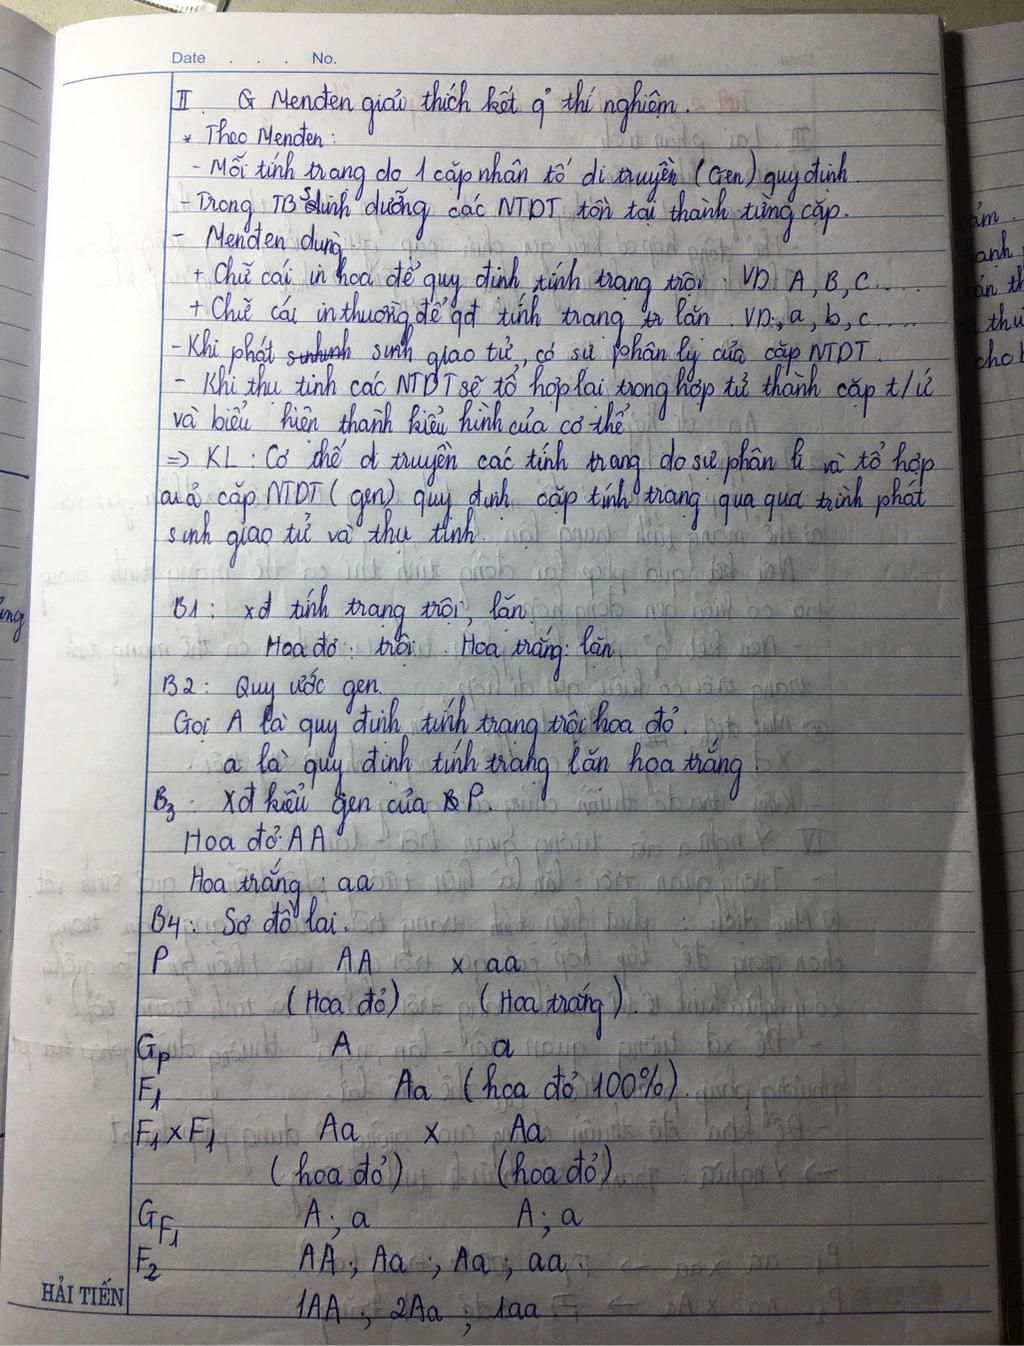 Date . . . No.
II. G Menđen giải thích kết q̉ thí nghiệm.
* Theo Menđen:
- Mỗi tính trạng do 1 cặp nhân tố di truyền (Gen) quy định.
- Trong TB Sinh dưỡng các NTDT tồn tại thành từng cặp.
- Menđen dùng
+ Chữ cái in hoa để quy định tính trạng trội: VD: A, B, C.....
+ Chữ cái in thường để qđ tính trạng lặn. VD: a, b, c.....
- Khi phát sinh giao tử, có sự phân ly của cặp NTDT.
- Khi thụ tinh các NTDT sẽ tổ hợp lại trong hợp tử thành cặp t/ứ
và biểu hiện thành kiểu hình của cơ thể
=> KL: Cơ chế di truyền các tính trạng do sự phân li và tổ hợp
của cặp NTDT (gen) quy định cặp tính trạng qua quá trình phát
sinh giao tử và thụ tinh.
B1: xđ tính trạng trội, lặn.
Hoa đỏ: trội. Hoa trắng: lặn
B2: Quy ước gen.
Gọi A là quy định tính trạng trội hoa đỏ.
a là quy định tính trạng lặn hoa trắng.
B3: Xđ kiểu gen của P.
Hoa đỏ: AA
Hoa trắng: aa
B4: Sơ đồ lai.
P AA x aa
(Hoa đỏ) (Hoa trắng).
Gp A a
F1 Aa (hoa đỏ 100%).
F1 x F1 Aa x Aa
(hoa đỏ) (hoa đỏ)
GF1 A; a A; a
F2 AA; Aa; Aa; aa.
HẢI TIẾN
1AA; 2Aa; 1aa